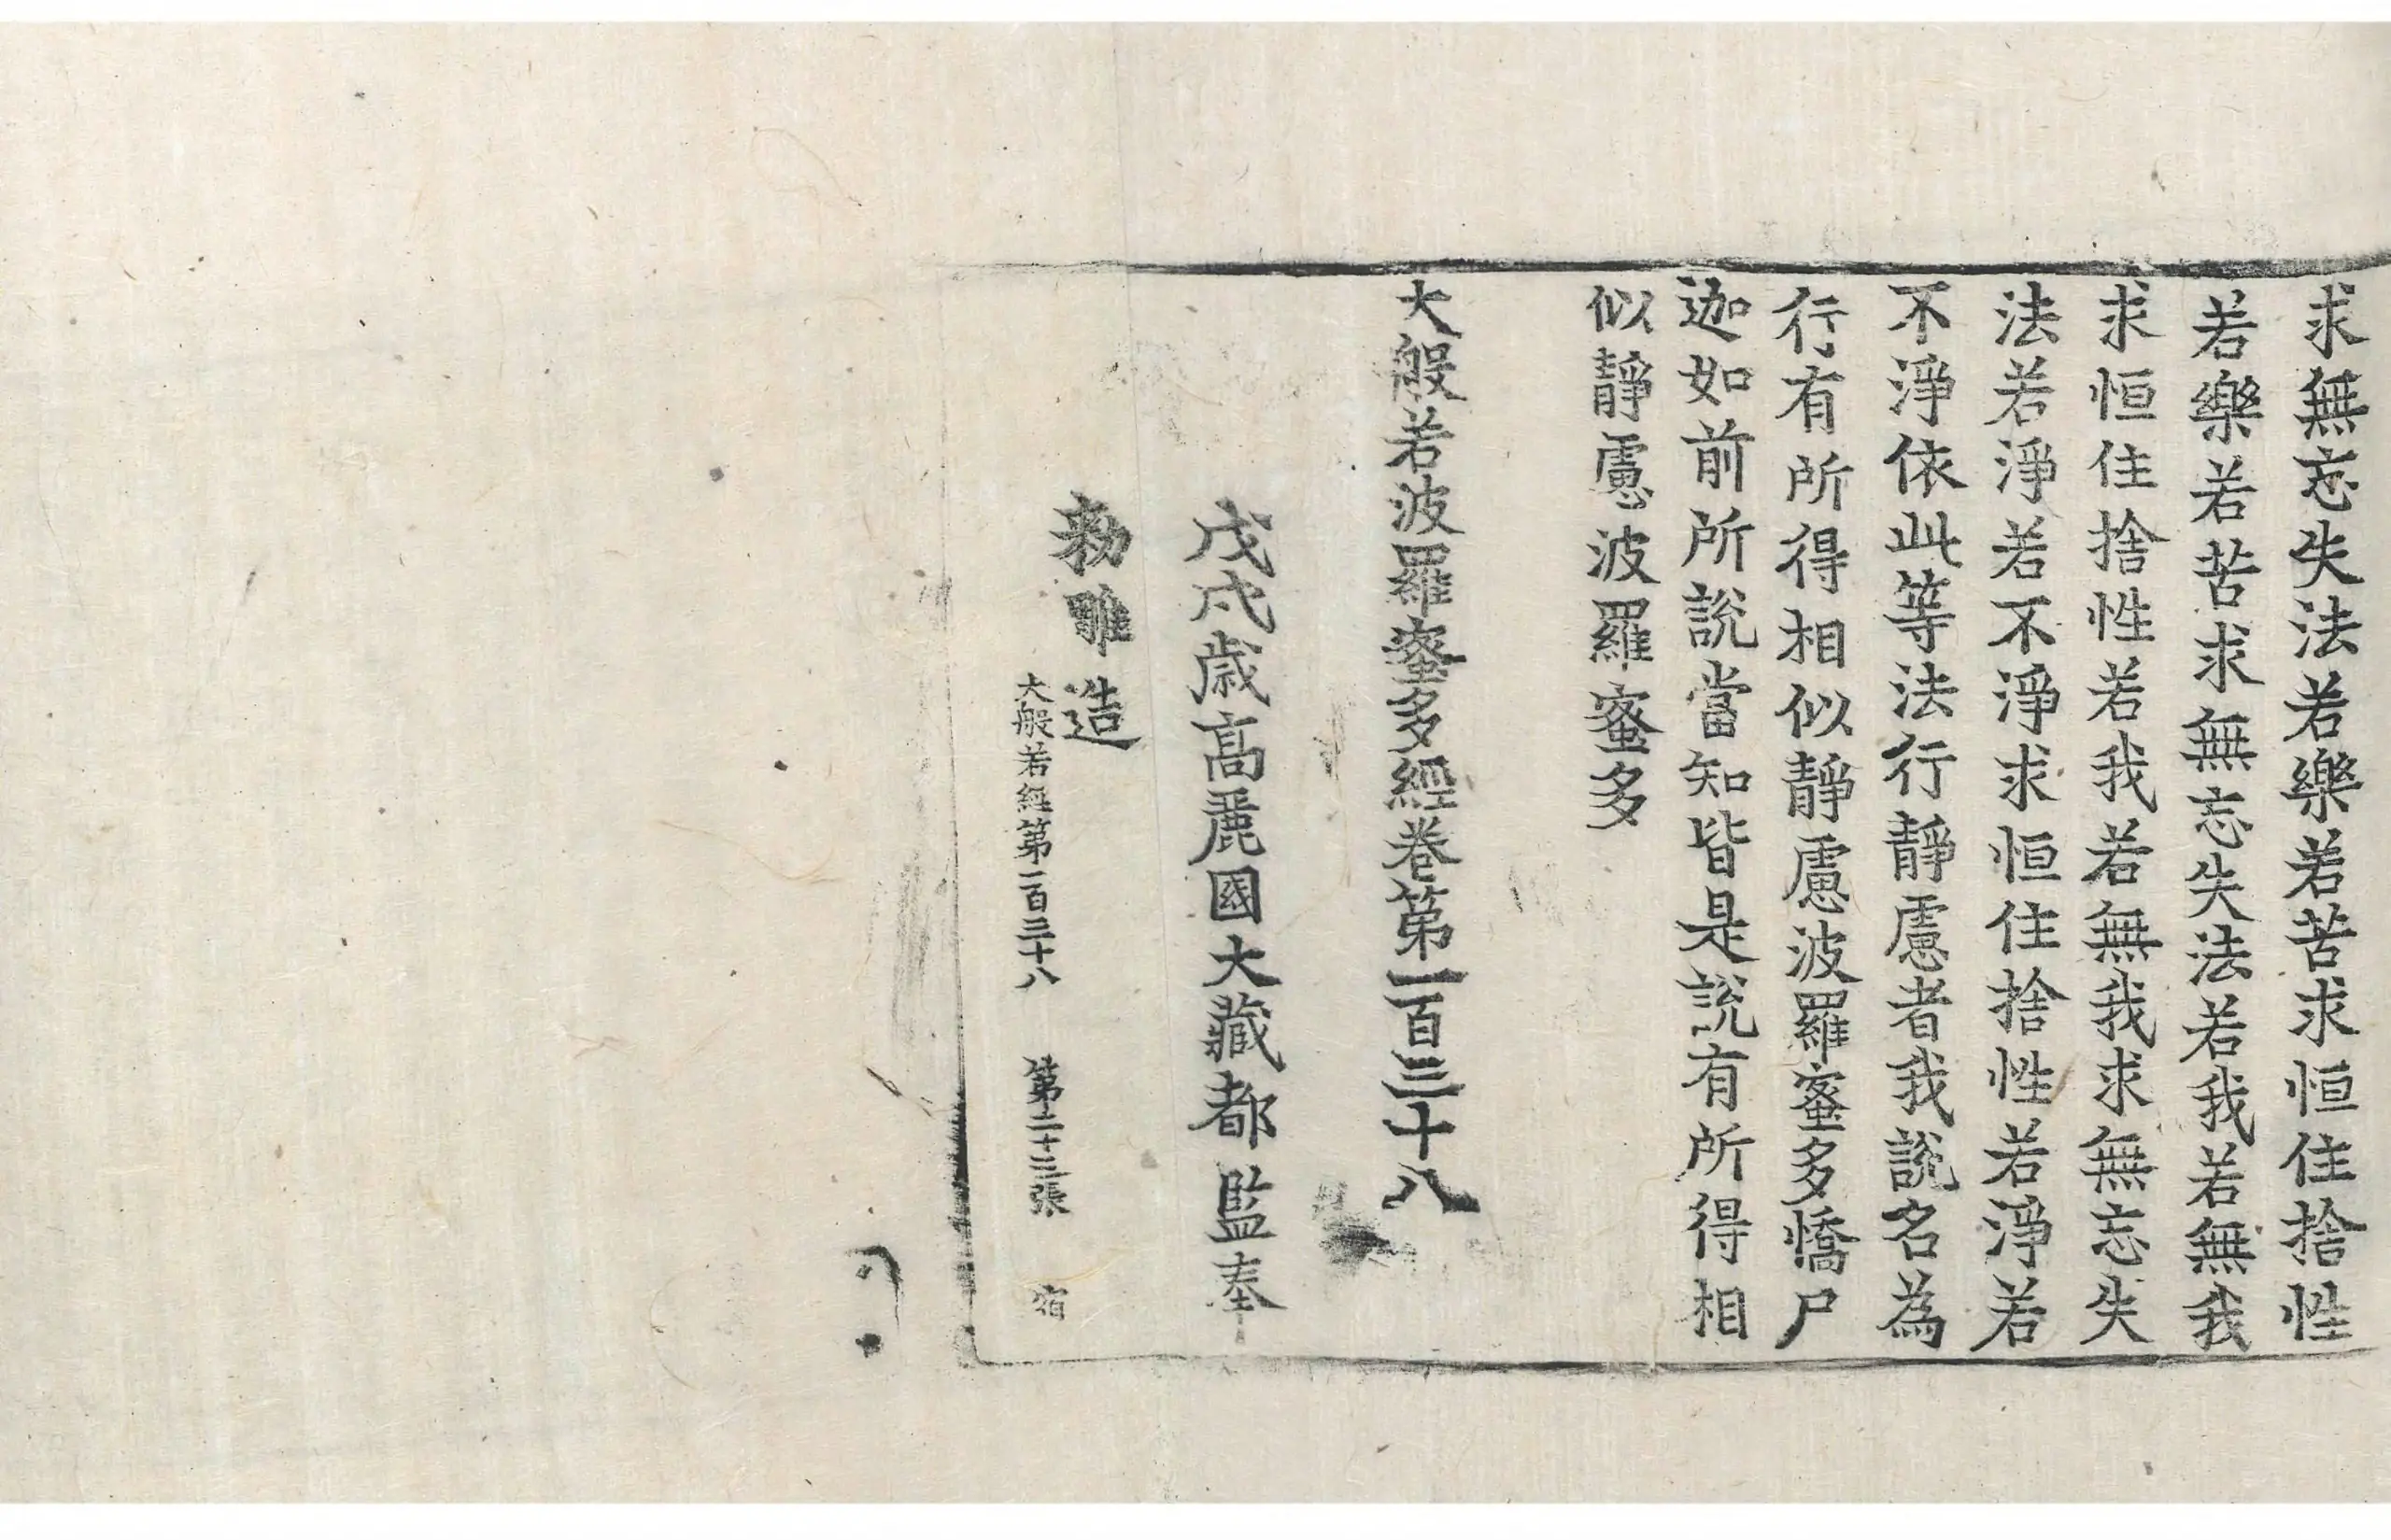 求無忘失法若樂若苦求恒住捨性
若樂若苦求無忘失法若我若無我
求恒住捨性若我若無我求無忘失
法若淨若不淨求恒住捨性若淨若
不淨依此等法行靜慮者我說名為
行有所得相似靜慮波羅蜜多憍尸
迦如前所說當知皆是說有所得相
似靜慮波羅蜜多
大般若波羅蜜多經卷第一百三十八
戊戌歲高麗國大藏都監奉
勑雕造
大般若經第一百三十八 第二十三張 宿